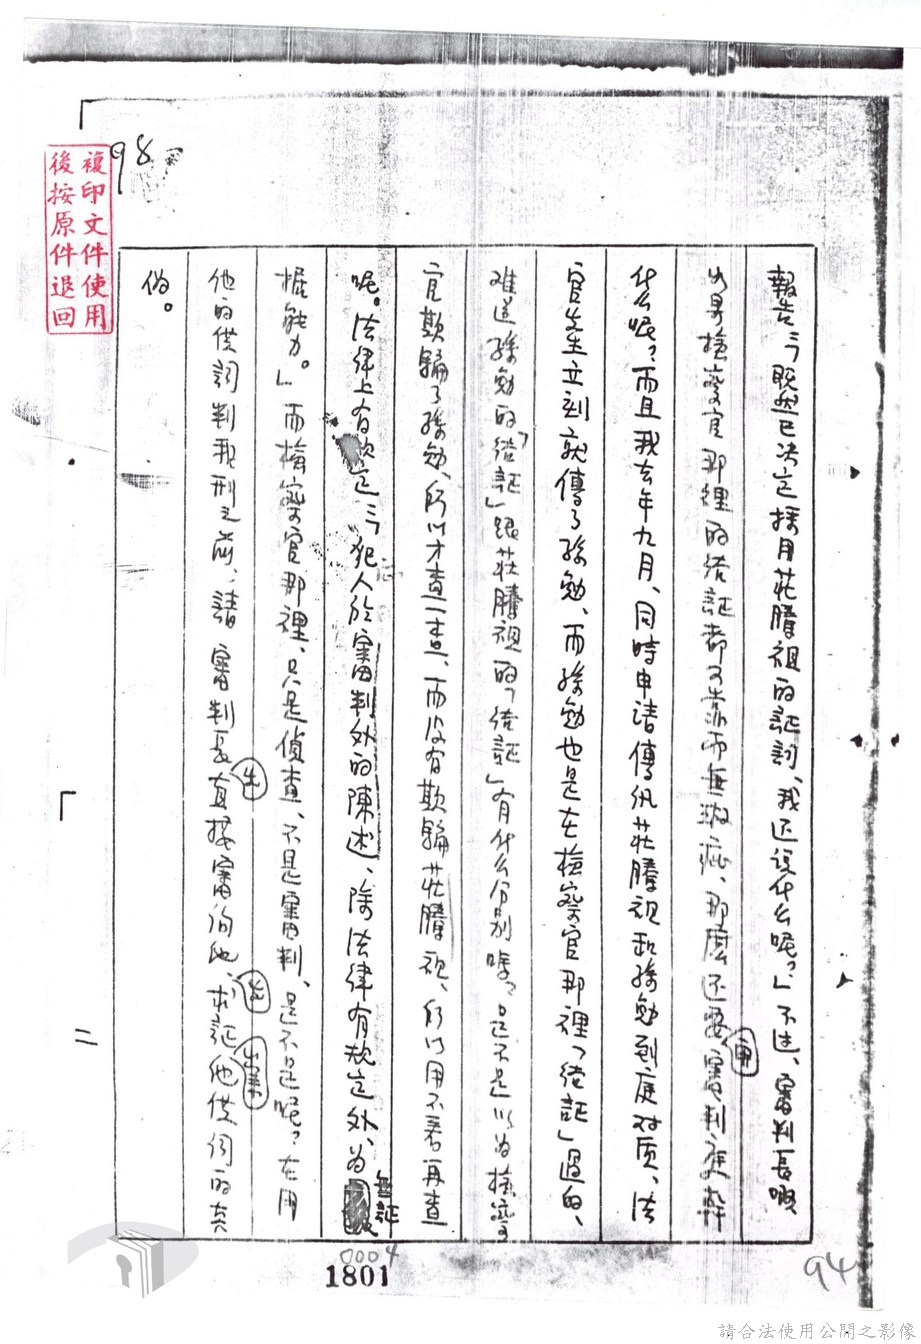 複印文件使用
後按原件退回
98
報告，「既然已決定採用莊騰祖的証詞、我还說什么呢？」不过、審判長呀
如果檢察官那裡的结証都可靠而無瑕疵、那麽还要審判庭幹
什么呢？而且我去年九月、同時申請傳訊莊騰祖和孫勉到庭对质、法
官先生立刻就傳了孫勉、而孫勉也是在檢察官那裡「结証」過的、
难道孫勉的「结証」跟莊騰祖的「结証」有什么分别嗎？是不是以为檢察
官欺騙了孫勉、所以才查一查、而没有欺騙莊騰祖、所以用不着再查
呢。法律上有款定「犯人於審判外的陳述、除法律有款定外、为無証
据能力。」而檢察官那裡、只是偵查、不是審判、是不是呢？在用
他的供詞判我刑之前、請審判長直接審詢他、求証他供词的真
偽。
二
0004
1801
94
請合法使用公開之影像